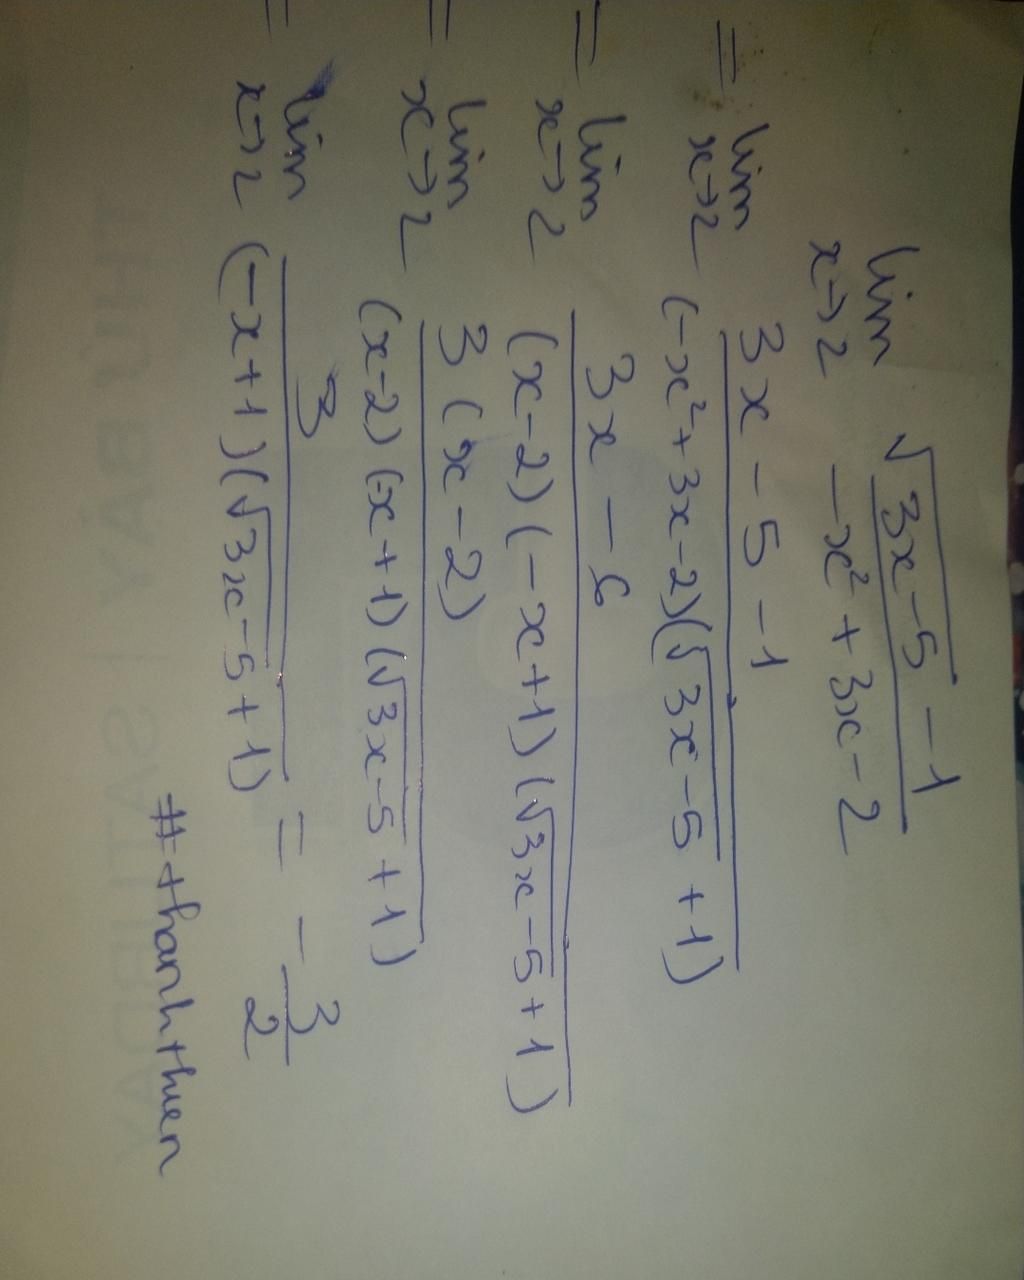 lim x→2 (√(3x-5) - 1) / (-x² + 3x - 2)
= lim x→2 (3x - 5 - 1) / ((-x² + 3x - 2)(√(3x-5) + 1))
= lim x→2 (3x - 6) / ((x-2)(-x+1)(√(3x-5) + 1))
= lim x→2 (3(x-2)) / ((x-2)(-x+1)(√(3x-5) + 1))
= lim x→2 3 / ((-x+1)(√(3x-5) + 1)) = - 3/2
#thanhthuen